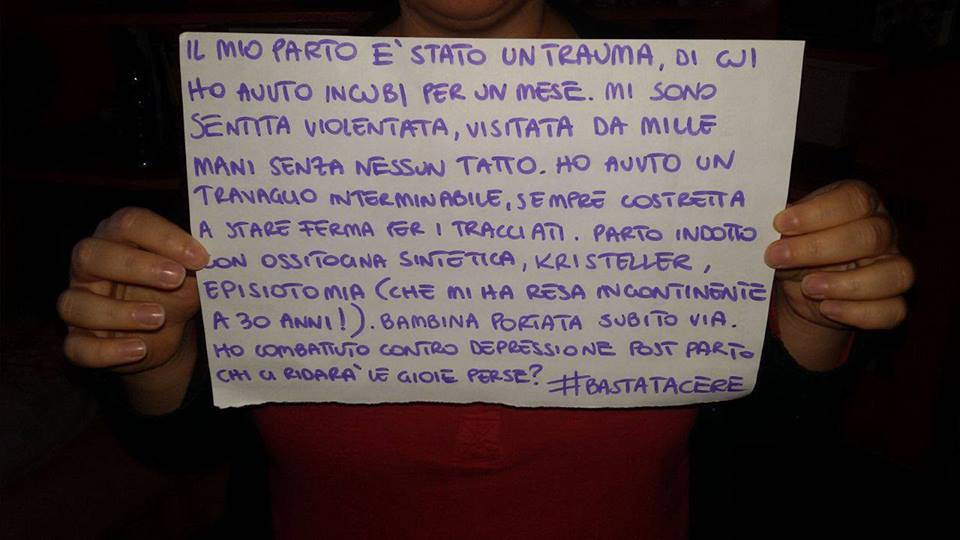 IL MIO PARTO E' STATO UN TRAUMA, DI CUI
HO AVUTO INCUBI PER UN MESE. MI SONO
SENTITA VIOLENTATA, VISITATA DA MILLE
MANI SENZA NESSUN TATTO. HO AVUTO UN
TRAVAGLIO INTERMINABILE, SEMPRE COSTRETTA
A STARE FERMA PER I TRACCIATI. PARTO INDOTTO
CON OSSITOCINA SINTETICA, KRISTELLER,
EPISIOTOMIA (CHE MI HA RESA INCONTINENTE
A 30 ANNI!). BAMBINA PORTATA SUBITO VIA.
HO COMBATTUTO CONTRO DEPRESSIONE POST PARTO
CHI CI RIDARA' LE GIOIE PERSE? #BASTATACERE